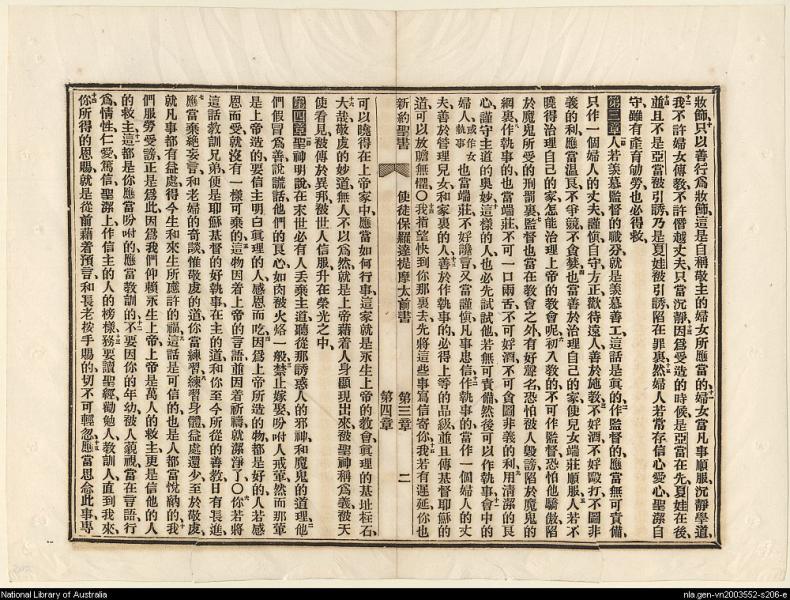 妝飾、只以善行爲妝飾、這是自稱敬主的婦女所應當的、婦女當凡事順服、沉靜學道、
我不許婦女傳教、不許僭越丈夫、只當沉靜、因爲受造的時候、是亞當在先、夏娃在後、
並且不是亞當被引誘、乃是夏娃被引誘、陷在罪裏、然婦人若常存信心愛心、聖潔自
守、雖有產育劬勞、也必得救、
第三章 人若羨慕監督的職分、就是羨慕善工、這話是眞的、作監督的、應當無可責備、
只作一個婦人的丈夫、謹愼自守、方正、歡待遠人、善於施教、不好酒、不好毆打、不圖非
義的利、應當溫良、不爭競、不貪婪、也當善於治理自己的家、使兒女端莊順服、人若不
曉得治理自己的家、怎能治理上帝的教會呢、初入教的不可作監督、恐怕他驕傲、陷
於魔鬼所受的刑罰裏、監督也當在教會之外有好聲名、恐怕被人毀謗、陷於魔鬼的
網裏、作執事的也當端莊、不可一口兩舌、不可好酒、不可貪圖非義的利、用清潔的良
心、謹守主道的奧妙、這樣的人也必先試試他、若無可責備、然後可以作執事、會中的
婦人、或作女執事也當端莊、不好讒言、又當謹愼、凡事忠信、作執事的、當作一個婦人的丈
夫、善於管理兒女和家裏的人、善於作執事的、必得上等的品級、並且傳基督耶穌的
道、可以放膽無懼、○我指望快到你那裏去、先將這些事寫信寄你、我若有遲延、你也
新約聖書 使徒保羅達提摩太前書 第三章 第四章 二
可以曉得在上帝家中、應當如何行事、這家就是永生上帝的教會、眞理的基址柱石、
大哉、敬虔的妙道、無人不以爲然、就是上帝藉着人身顯現出來、被聖神稱爲義、被天
使看見、被傳於異邦、被世人信服、升在榮光之中、
第四章 聖神明說、在末世必有人丟棄主道、聽從那誘惑人的邪神、和魔鬼的道理、他
們假冒爲善、說謊話、他們的良心、如肉被火烙一般、禁止嫁娶、吩咐人戒葷、然而那葷
是上帝造的、要信主明白眞理的人、感恩而吃、因爲上帝所造的物、都是好的、人若感
恩而受、就沒有一樣可棄的、這物因着上帝的言語、並因着祈禱、就潔淨了、○你若將
這話教訓兄弟、便是耶穌基督的好執事、在主的道和你至今所從的善教、日有長進、
應當棄絕妄言、和老婦的奇談、惟敬虔的道、你當練習、練習身體、益處還少、至於敬虔、
就凡事都有益處、得今生和來生所應許的福、這話是可信的、也是人都當悅納的、我
們服勞受謗、正是爲此、因爲我們仰賴永生上帝、上帝是萬人的救主、更是信他的人
的救主、這都是你應當吩咐的、應當教訓的、不要因你的年幼、被人藐視、當在言語行
爲情性仁愛篤信聖潔上、作信主的人的榜樣、務要讀聖經、勸勉人、教訓人、直到我來、
你所得的恩賜、就是從前藉着預言、和長老按手賜的、切不可輕忽、應當思念此事、專
National Library of Australia
nla.gen-vn2003552-s206-e